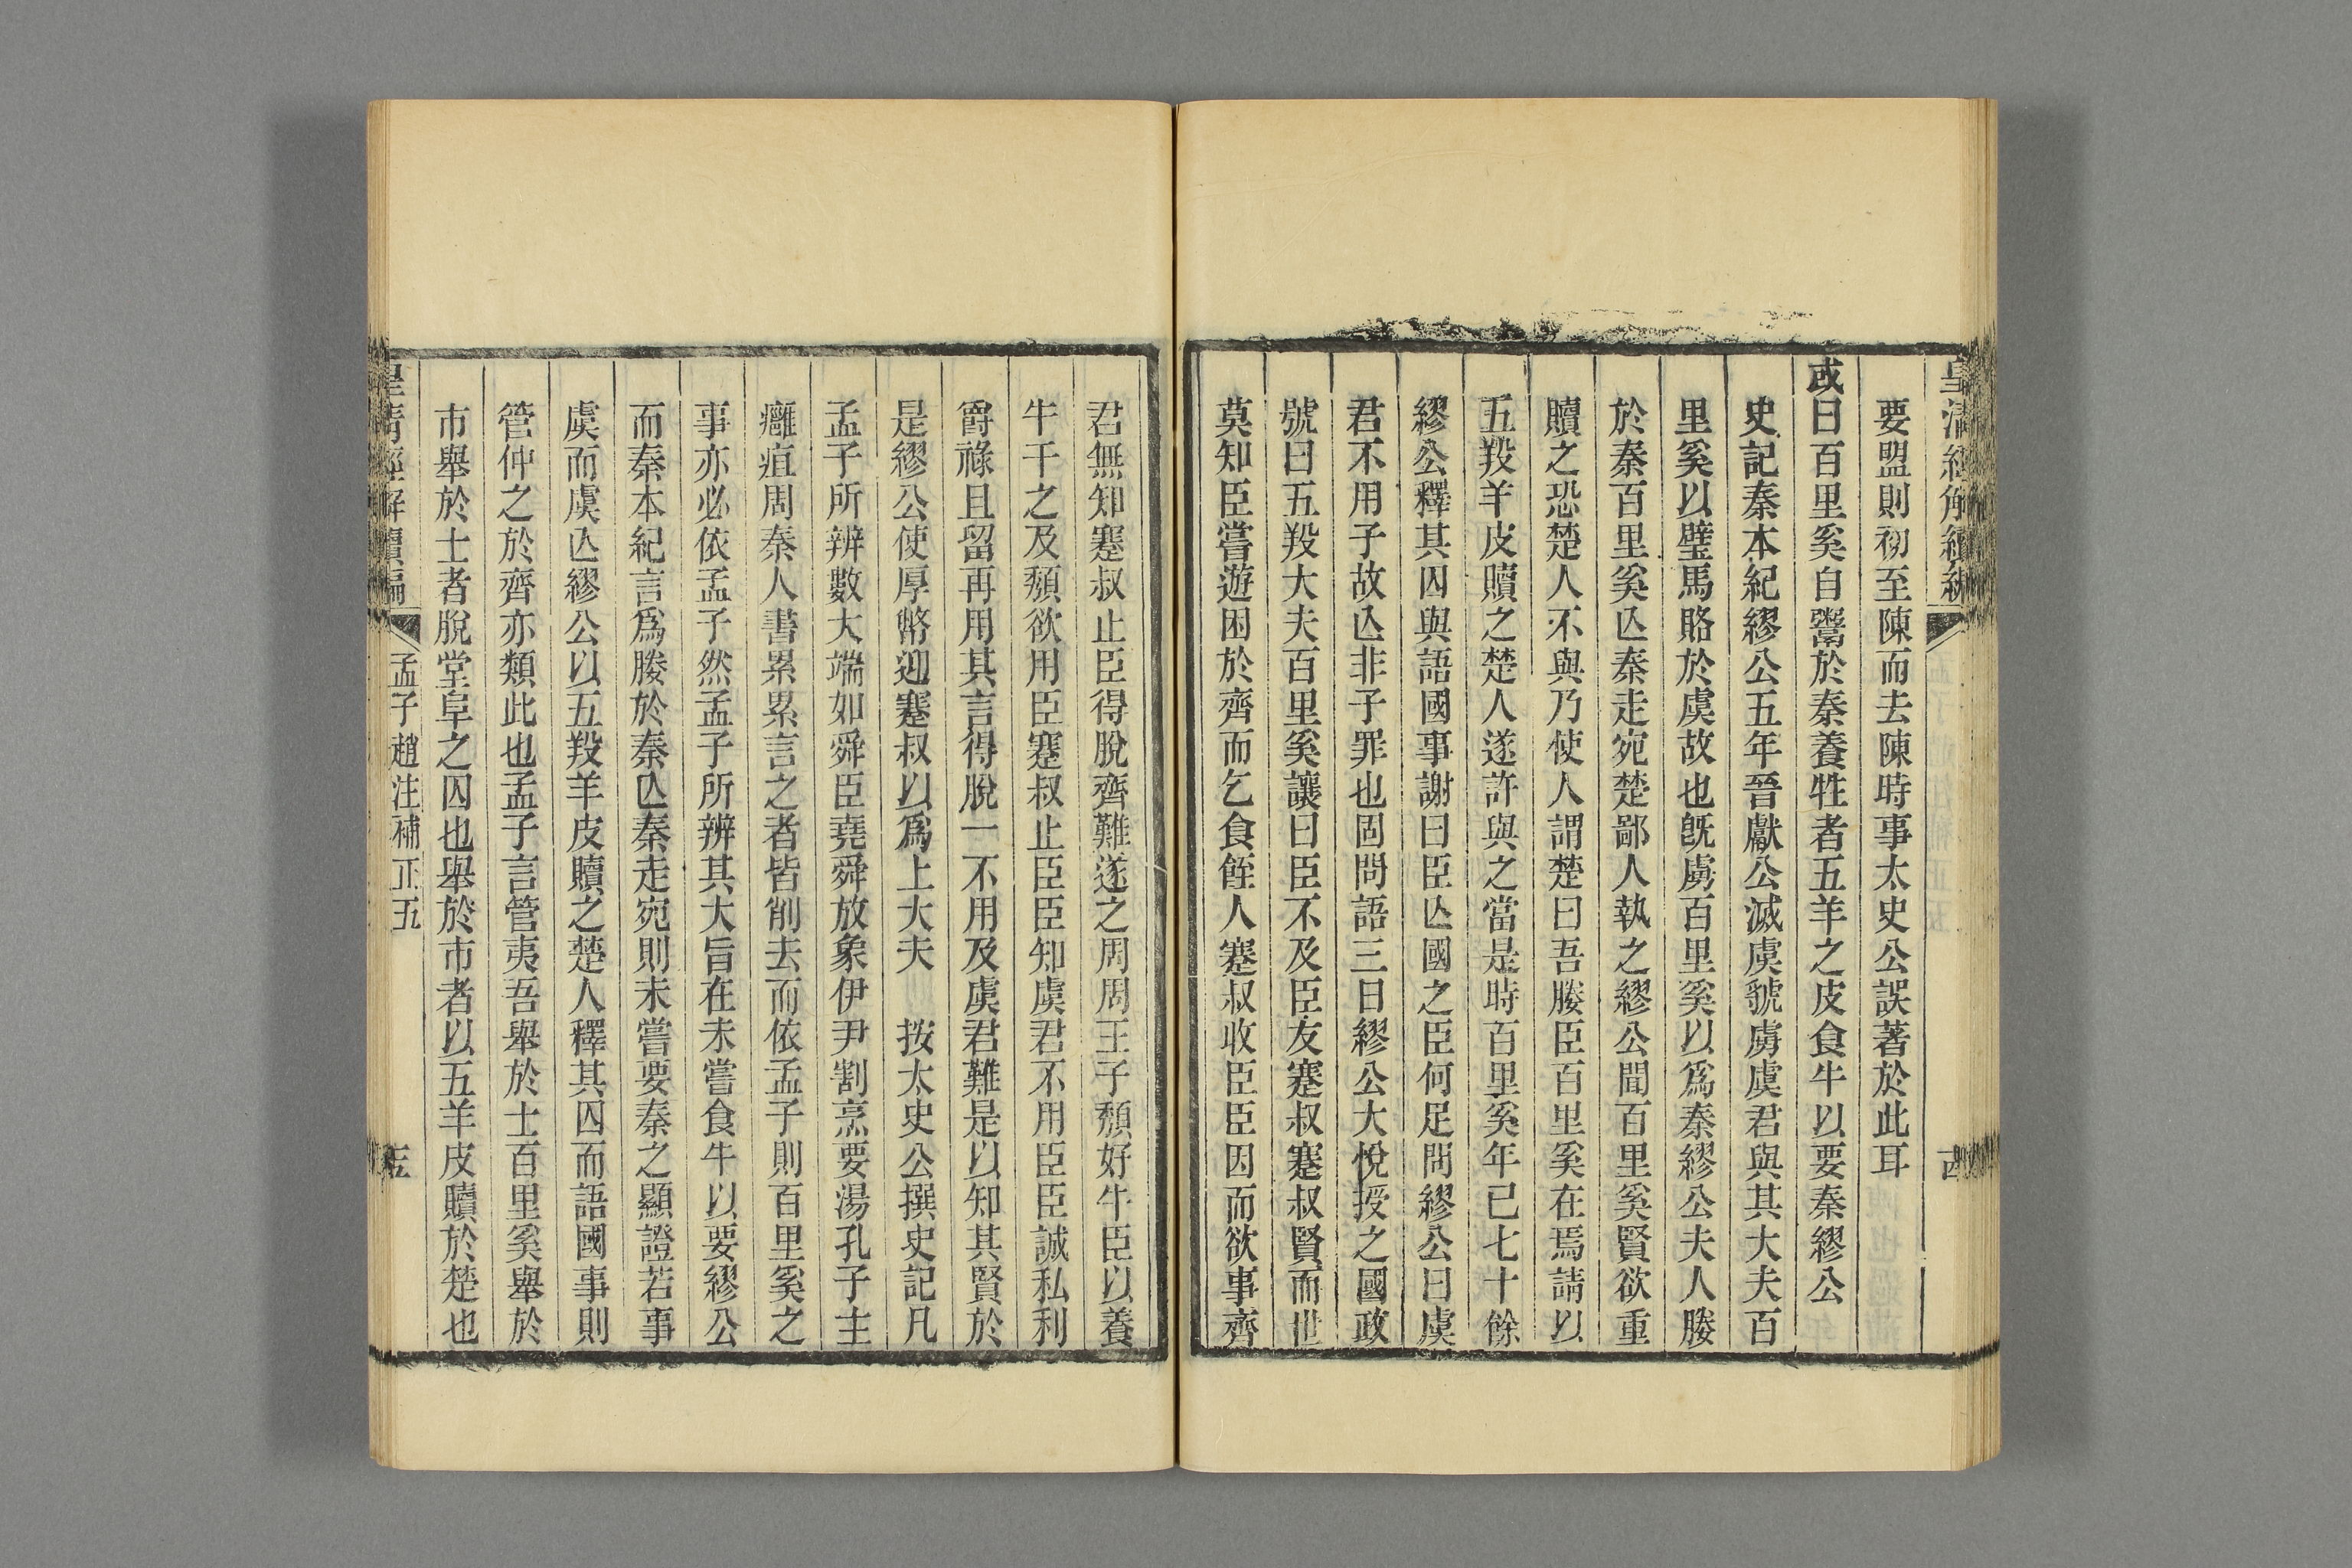 皇清經解續編
要盟則初至陳而去陳時事太史公誤著於此耳
或曰百里奚自鬻於秦養牲者五羊之皮食牛以要秦繆公
史記秦本紀繆公五年晉獻公滅虞虢虜虞君與其大夫百
里奚以璧馬賂於虞故也旣虜百里奚以爲秦繆公夫人媵
於秦百里奚亾秦走宛楚鄙人執之繆公聞百里奚賢欲重
贖之恐楚人不與乃使人謂楚曰吾媵臣百里奚在焉請以
五羖羊皮贖之楚人遂許與之當是時百里奚年已七十餘
繆公釋其囚與語國事謝曰臣亾國之臣何足問繆公曰虞
君不用子故亾非子罪也固問語三日繆公大悅授之國政
號曰五羖大夫百里奚讓曰臣不及臣友蹇叔蹇叔賢而世
莫知臣嘗遊困於齊而乞食餰人蹇叔收臣臣因而欲事齊
君無知蹇叔止臣得脫齊難遂之周周王子頹好牛臣以養
牛干之及頹欲用臣蹇叔止臣臣知虞君不用臣臣誠私利
爵祿且留再用其言得脫一不用及虞君難是以知其賢於
是繆公使厚幣迎蹇叔以爲上大夫　按太史公撰史記凡
孟子所辨數大端如舜臣堯舜放象伊尹割烹要湯孔子主
癰疽周秦人書累累言之者皆削去而依孟子則百里奚之
事亦必依孟子然孟子所辨其大旨在未嘗食牛以要繆公
而秦本紀言爲媵於秦亾秦走宛則未嘗要秦之顯證若事
虞而虞亾繆公以五羖羊皮贖之楚人釋其囚而語國事則
管仲之於齊亦類此也孟子言管夷吾舉於士百里奚舉於
市舉於士者脫堂阜之囚也舉於市者以五羊皮贖於楚也
皇清經解續編
孟子趙注補正五